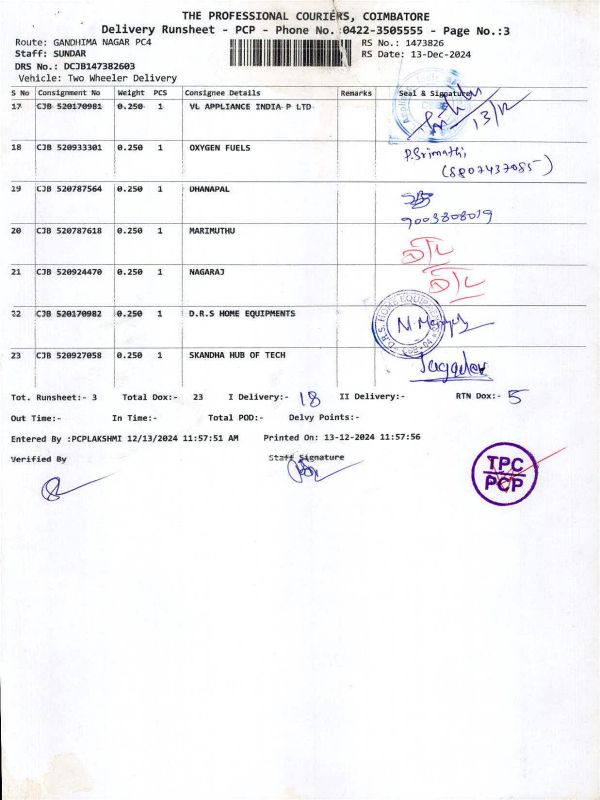 THE PROFESSIONAL COURIERS, COIMBATORE
Delivery Runsheet - PCP - Phone No.:0422-3505555 - Page No.:3
Route: GANDHIMA NAGAR PC4 RS No.: 1473826
Staff: SUNDAR RS Date: 13-Dec-2024
DRS No.: DCJB147382603
Vehicle: Two Wheeler Delivery
S No Consignment No Weight PCS Consignee Details Remarks Seal & Signature
17 CJB 520170981 0.250 1 VL APPLIANCE INDIA P LTD 13/12
18 CJB 520933301 0.250 1 OXYGEN FUELS P.Srimathi,
(8807437085)
19 CJB 520787564 0.250 1 DHANAPAL
9003808019
20 CJB 520787618 0.250 1 MARIMUTHU D/L
21 CJB 520924470 0.250 1 NAGARAJ D/L
22 CJB 520170982 0.250 1 D.R.S HOME EQUIPMENTS
23 CJB 520927058 0.250 1 SKANDHA HUB OF TECH
Tot. Runsheet:- 3 Total Dox:- 23 I Delivery:- 18 II Delivery:- RTN Dox:- 5
Out Time:- In Time:- Total POD:- Delvy Points:-
Entered By :PCPLAKSHMI 12/13/2024 11:57:51 AM Printed On: 13-12-2024 11:57:56
Verified By Staff Signature
TPC
PCP